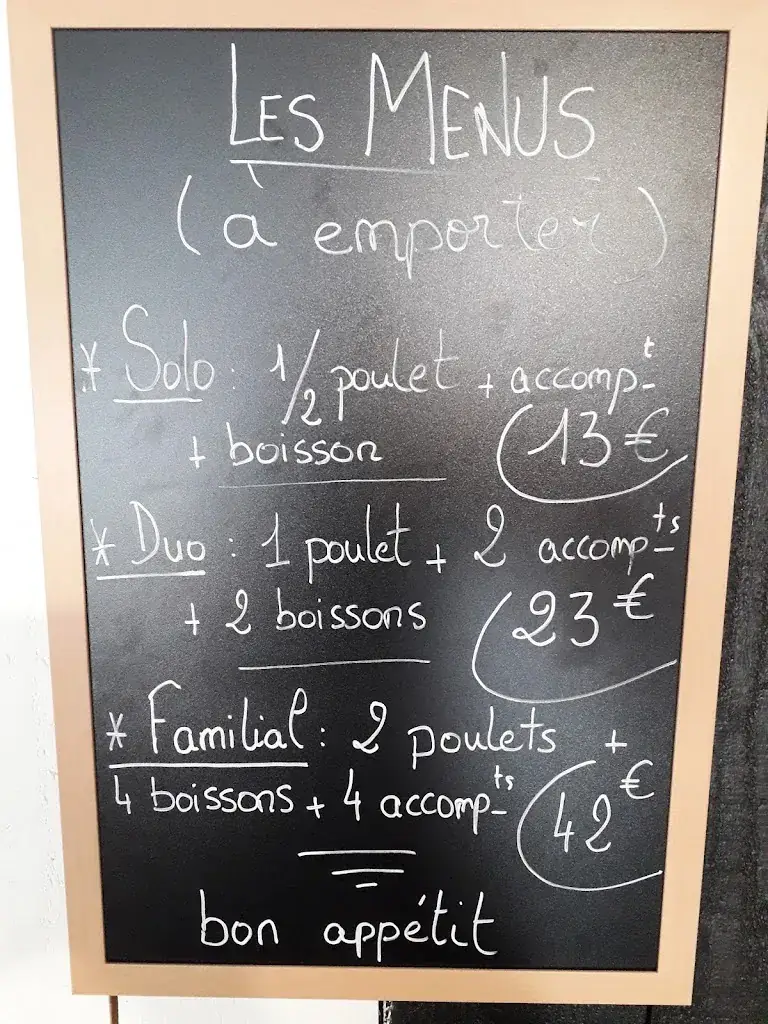 LES MENUS
(à emporter)
* Solo : 1/2 poulet + accomp-t
+ boisson 13€
* Duo : 1 poulet + 2 accomp-ts
+ 2 boissons 23€
* Familial : 2 poulets +
4 boissons + 4 accomp-ts 42€
bon appétit